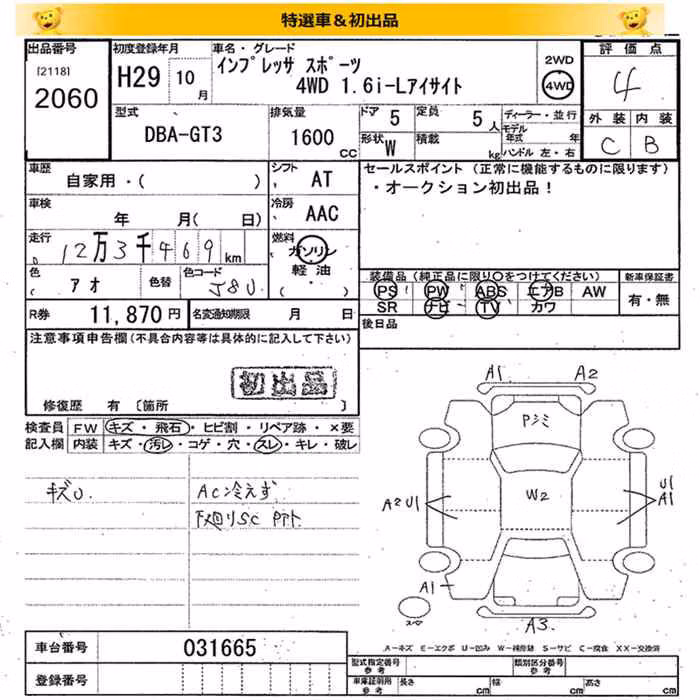 特選車＆初出品
出品番号
[2118]
2060
初度登録年月
H29 10月
車名・グレード
インプレッサ スポーツ
4WD 1.6i-Lアイサイト
2WD
4WD
評価点
4
外装 内装
C B
型式
DBA-GT3
排気量
1600 CC
ドア 5
定員 5人
形状 W
積載 kg
ディーラー・並行
モデル年式 年
ハンドル 左・右
車歴
自家用・( )
シフト AT
セールスポイント（正常に機能するものに限ります）
・オークション初出品！
車検
年 月( 日)
冷房 AAC
走行
12万3千469km
燃料
ガソリン
軽油
・( )
色 アオ 色替
色コード J8U
装備品（純正品に限り○をつけてください）
PS PW ABS エアB AW
SR ナビ TV カワ
新車保証書
有・無
R券 11,870円
名変通知期限 月 日
後日品
注意事項申告欄(不具合内容等は具体的に記入して下さい)
初出品
修復歴 有〔箇所 〕
検査員記入欄
FW キズ・飛石・ヒビ割・リペア跡・×要
内装 キズ・汚レ・コゲ・穴・スレ・キレ・破レ
キズU.
AC冷えず
下廻りSC
A1 A2
Pシミ
A2 U1
W2
U1
A1
A1
A3
スペア
A－キズ E－エクボ U－凹み W－補修跡 S－サビ C－腐食 XX－交換済
車台番号 031665
登録番号
型式指定番号 参考
類別区分番号 参考
車庫証明用 参考
長さ cm
幅 cm
高さ cm